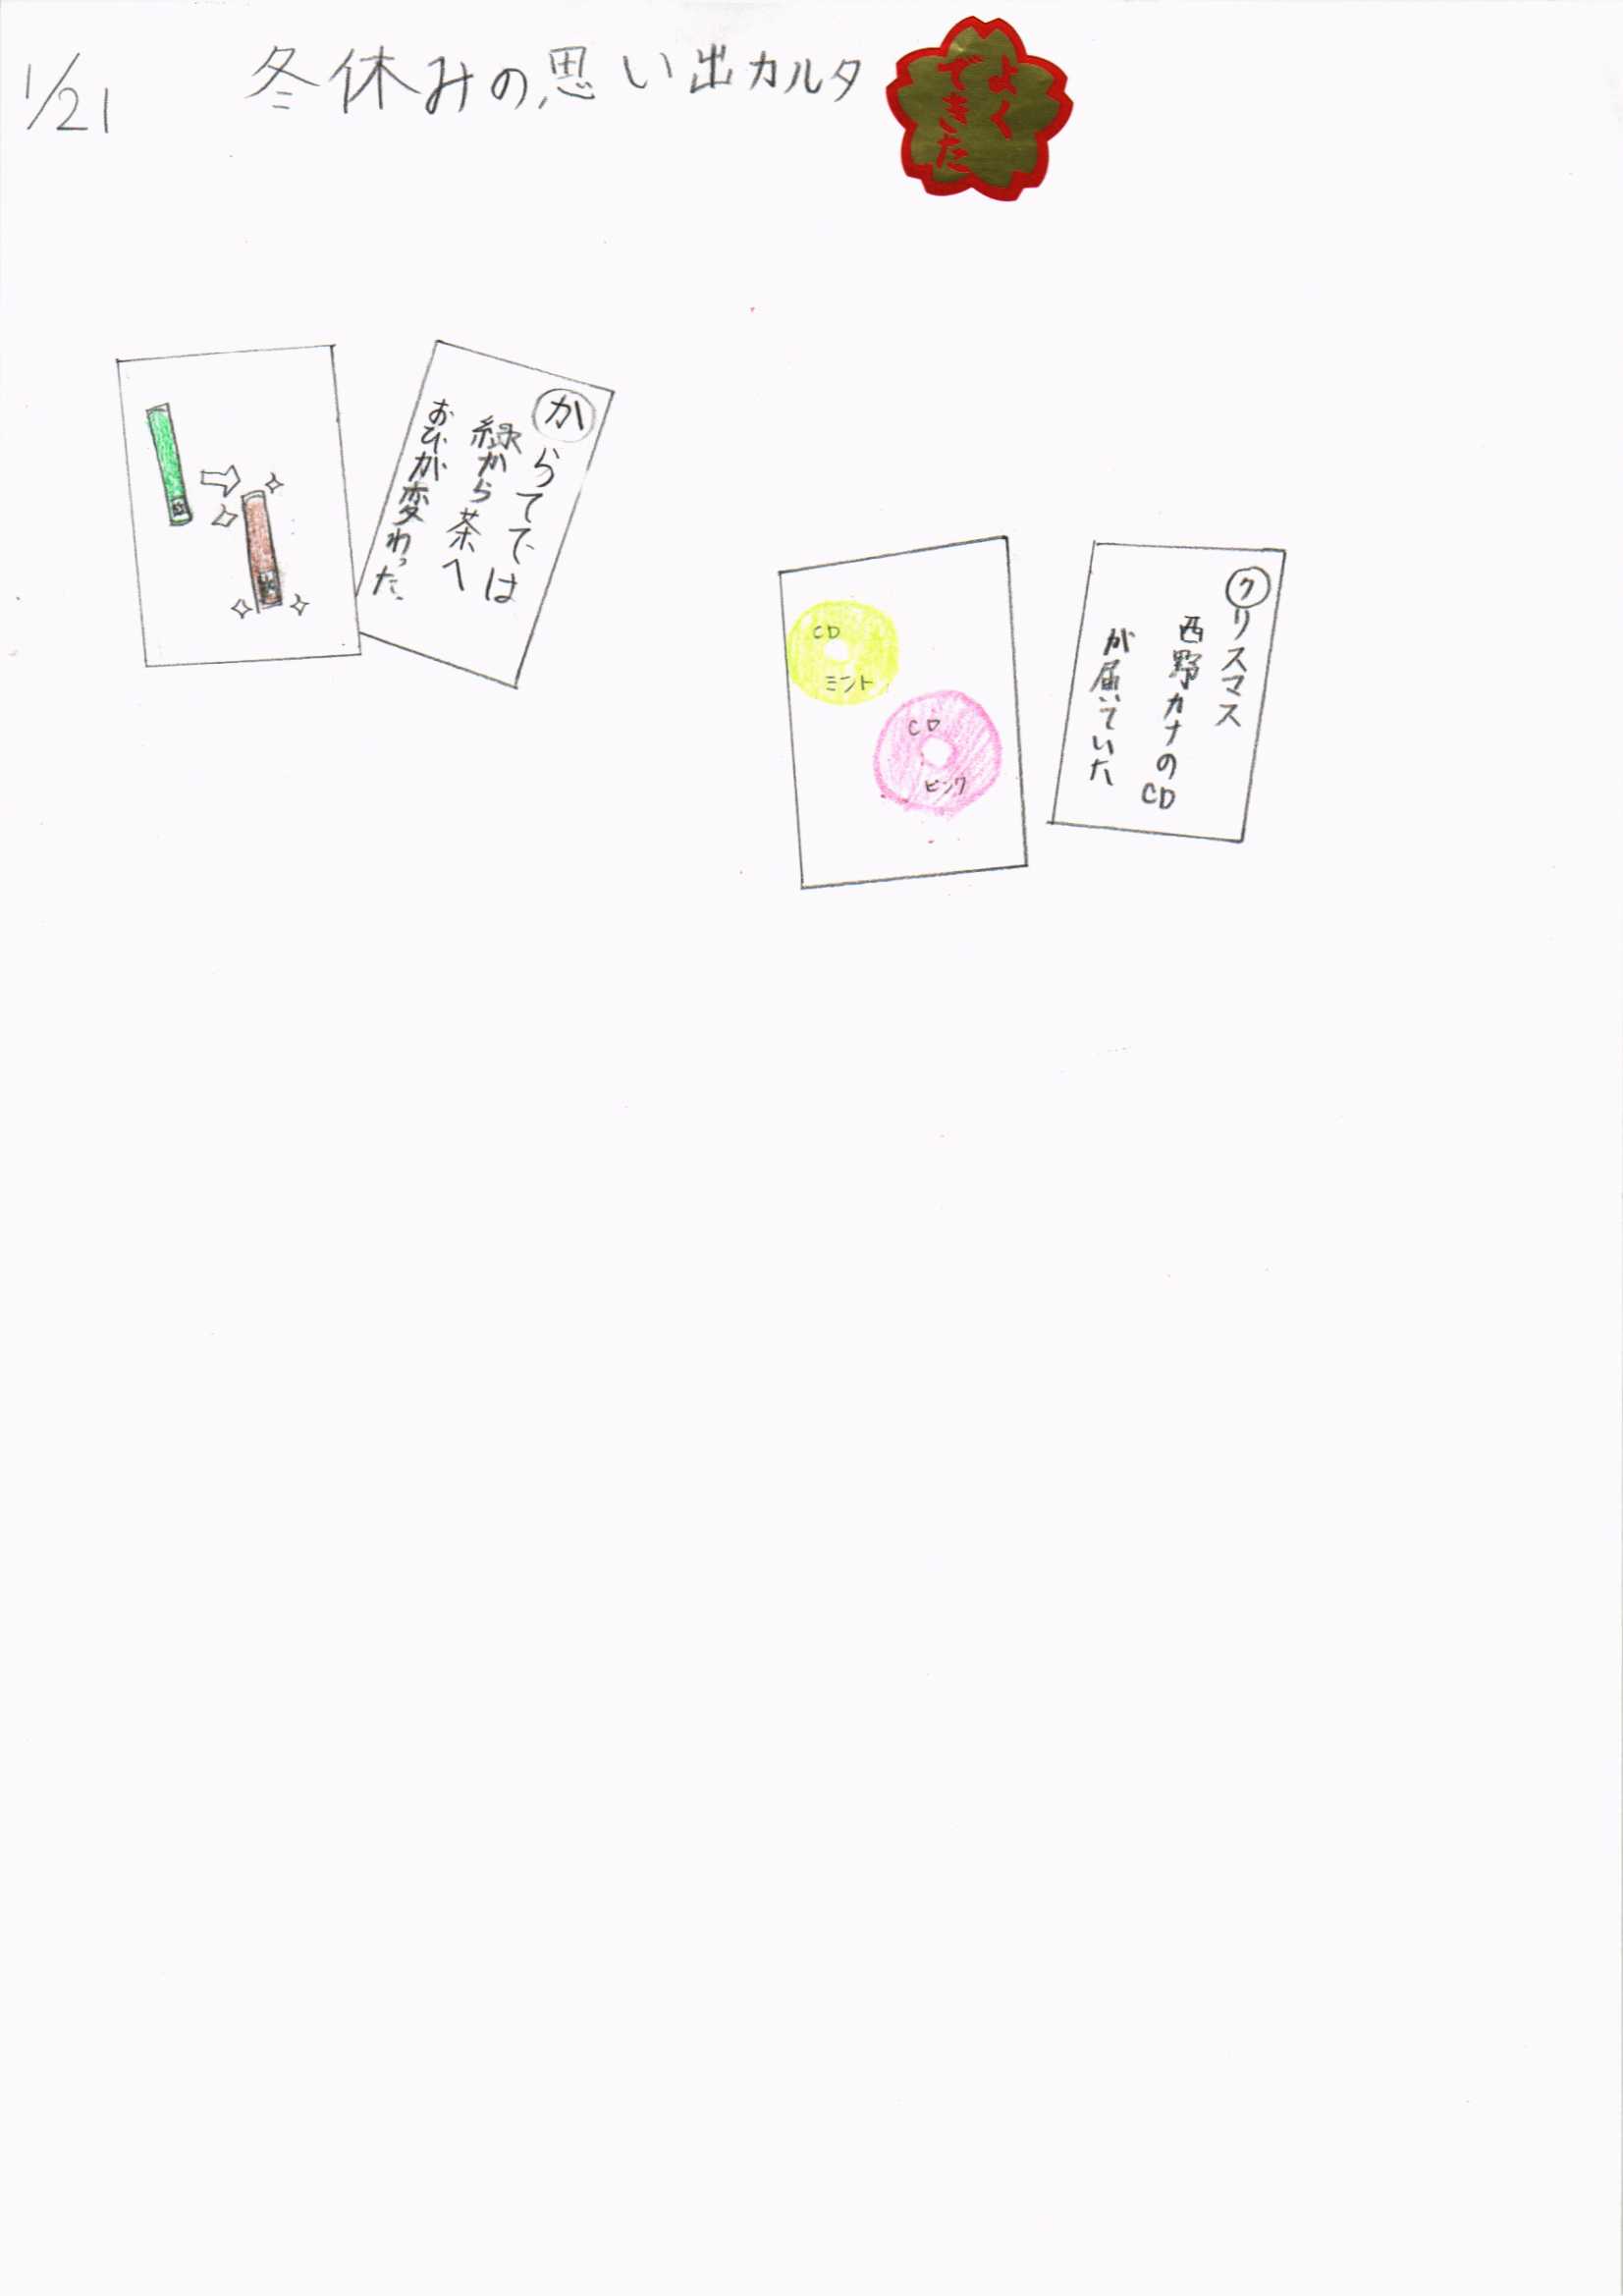 1/21
冬休みの思い出カルタ
よく
できた
からてでは
緑から茶へ
おびが変わった。
CD
ミント
CD
ピンク
クリスマス
西野カナのCD
が届いていた